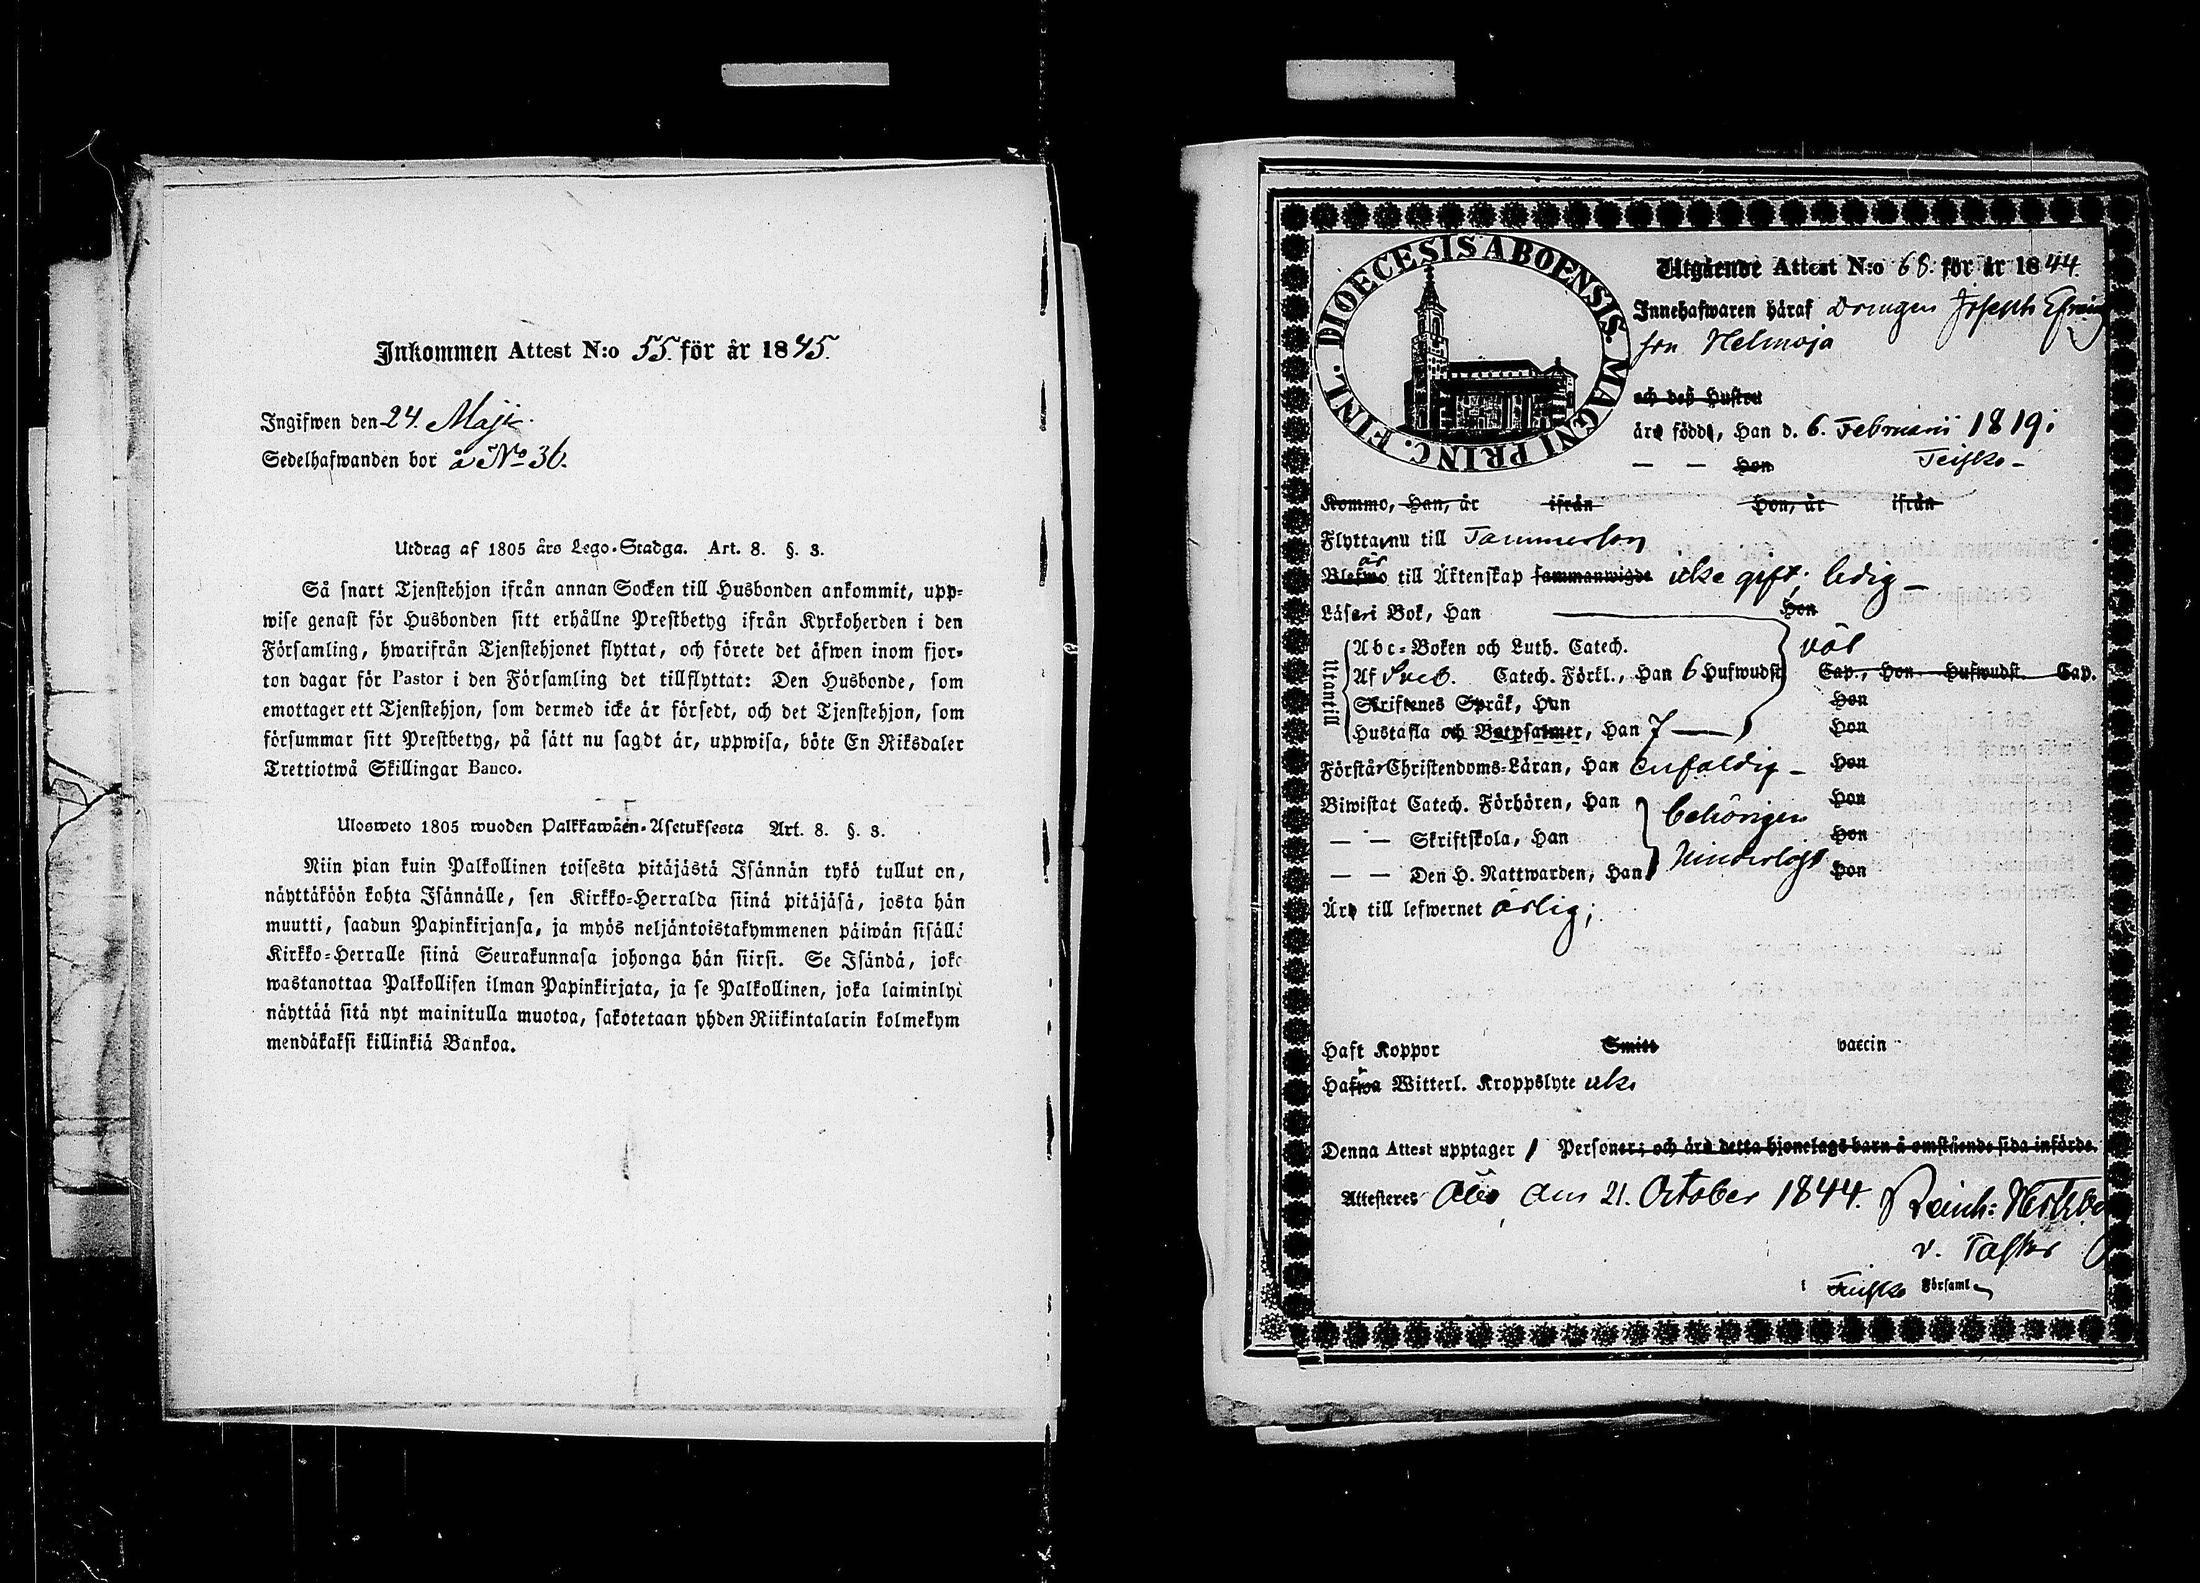 Inkommen Attest N:o 55. för år 1845.
Ingifwen den 24. Maji.
Sedelhafwanden bor å No 36.
Utdrag af 1805 års Lego-Stadga. Art. 8. §. 3.
Så snart Tjenstehjon ifrån annan Socken till Husbonden ankommit, upp-
wise genast för Husbonden sitt erhållne Prestbetyg ifrån Kyrkoherden i den
Församling, hwarifrån Tjenstehjonet flyttat, och förete det äfwen inom fjor-
ton dagar för Pastor i den Församling det tillflyttat: Den Husbonde, som
emottager ett Tjenstehjon, som dermed icke är försedt, och det Tjenstehjon, som
försummar sitt Prestbetyg, på sätt nu sagdt är, uppwisa, böte En Riksdaler
Trettiotwå Skillingar Banco.
Ulosweto 1805 wuoden Palkkawäen-Asetuksesta Art. 8. §. 3.
Niin pian kuin Palkollinen toisesta pitäjästä Isännän tykö tullut on,
näyttäköön kohta Isännälle, sen Kirkko-Herralda siinä pitäjäsä, josta hän
muutti, saadun Papinkirjansa, ja myös neljäntoistakymmenen päiwän sisällä
Kirkko-Herralle siinä Seurakunnasa johonga hän siirsi. Se Isändä, joka
wastanottaa Palkollisen ilman Papinkirjata, ja se Palkollinen, joka laiminlyi
näyttää sitä nyt mainitulla muotoa, sakotetaan yhden Riikintalarin kolmekym
mendäkaksi killinkiä Bankoa.
DIOECESIS ABOENSIS. MAGNI PRINC. FINL.
Utgående Attest N:o 68. för år 1844.
Innehafwaren häraf Drängen Joseph Efraims
son Helmoja
och deß Hustru
äro födde, Han d. 6. Februarii 1819 i
— — Hon Teisko -
Kommo, Han, år ifrån Hon, år ifrån
Flytta nu till Tammerfors
är
Blefwo till Äktenskap sammanwigde icke gift; ledig -
Läser i Bok, Han Hon
Abc-Boken och Luth. Catech. väl
Utantill
Af Sveb. Catech. Förkl., Han 6 Hufwudst. Cap., Hon Hufwudst. Cap.
Skriftenes Språk, Han Hon
Hustafla och Botpsalmer, Han 7 — Hon
Förstår Christendoms-Läran, Han enfaldig - Hon
Biwistat Catech. Förhören, Han behörigen Hon
— — Skriftskola, Han Hon
— — Den H. Nattwarden, Han hinderlöst Hon
Äro till lefwernet ärlig;
Haft Koppor Smitt vaccin
Hafwa Witterl. Kroppslyte icke
Denna Attest upptager 1 Personer; och äro detta hjonelags barn å omstående sida införde.
Attesteres den 21. October 1844. Reinh:
v. Pastor
i Teisko Församl